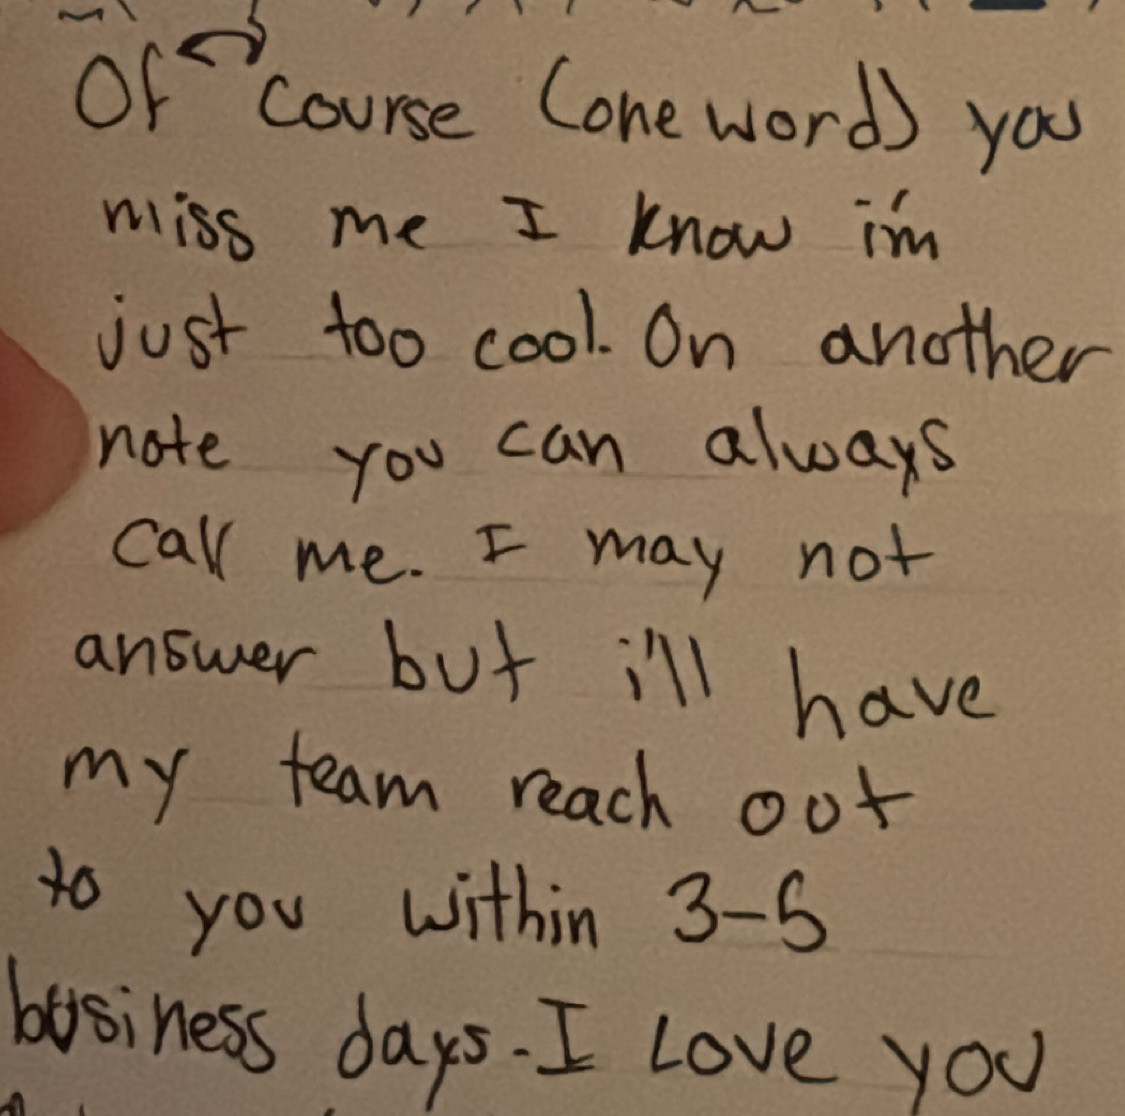 Of course (one word) you
miss me I know i'm
just too cool. On another
note you can always
call me. I may not
answer but i'll have
my team reach out
to you within 3-5
business days. I Love you